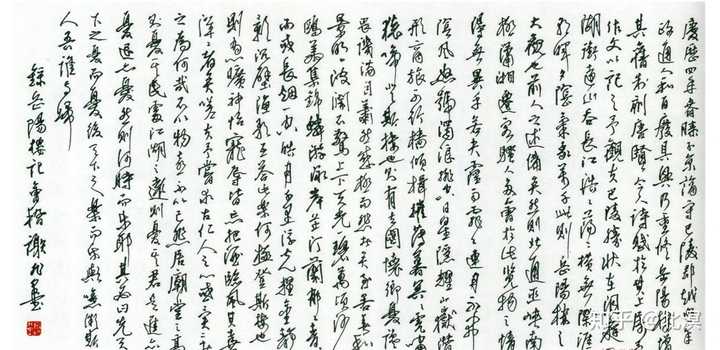 慶歷四年春滕子京謫守巴陵郡越明年
政通人和百廢具興乃重修岳陽樓增
其舊制刻唐賢今人詩賦於其上屬予
作文以記之予觀夫巴陵勝狀在洞庭一
湖銜遠山吞長江浩浩蕩蕩橫無際涯
朝暉夕陰氣象萬千此則岳陽樓之
大觀也前人之述備矣然則北通巫峽南
極瀟湘遷客騷人多會於此覽物之情
得無異乎若夫霪雨霏霏連月不開
陰風怒號濁浪排空日星隱耀山岳潛
形商旅不行檣傾楫摧薄暮冥冥虎嘯
猿啼登斯樓也則有去國懷鄉憂讒
畏譏滿目蕭然感極而悲者矣至若春和
景明波瀾不驚上下天光一碧萬頃沙
鷗翔集錦鱗游泳岸芷汀蘭郁郁青青
而或長煙一空皓月千里浮光耀金靜
影沉璧漁歌互答此樂何極登斯樓也
則有心曠神怡寵辱皆忘把酒臨風其喜
洋洋者矣嗟夫予嘗求古仁人之心或異二者
之為何哉不以物喜不以己悲居廟堂之高
則憂其民處江湖之遠則憂其君是進亦
憂退亦憂然則何時而樂耶其必曰先天
下之憂而憂後天下之樂而樂歟噫微斯
人吾誰與歸
錄岳陽樓記 會稽謝 墨
知乎 @北冥